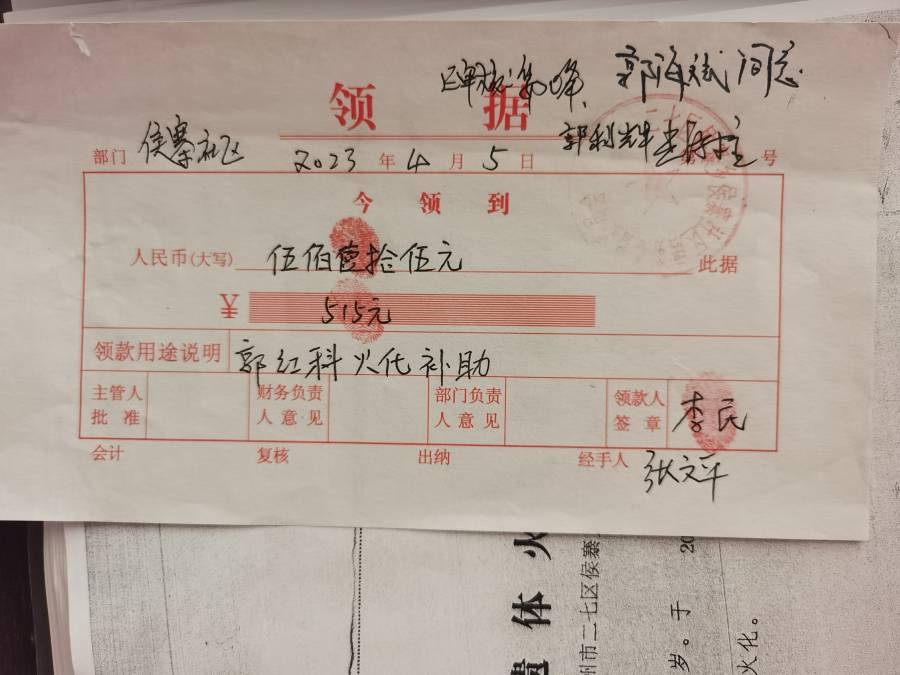 郭海斌同志
领 据
郭利
部门 侯寨社区 2023 年 4 月 5 日 号
今 领 到
人民币(大写) 伍佰壹拾伍元 此据
¥ 515元
领款用途说明 郭红科火化补助
主管人批准 财务负责人意见 部门负责人意见 领款人签章 李民
会计 复核 出纳 经手人 张文平
遗体火
州市二七区侯寨
岁。于 20
火化。